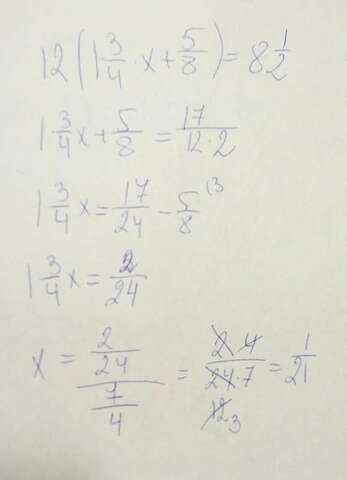 12(1 3/4 · x + 5/8) = 8 1/2
1 3/4 x + 5/8 = 17/(12·2)
1 3/4 x = 17/24 - 5/8 ^13
1 3/4 x = 2/24
x = (2/24)/(7/4) = (2·4)/(24·7) = 1/21
12 3